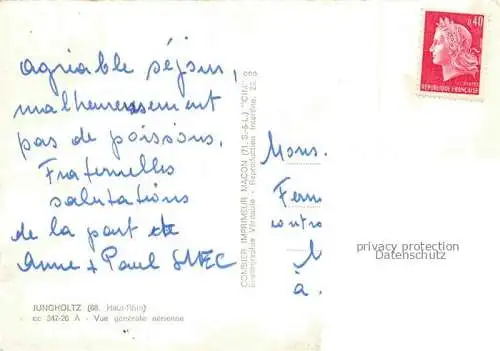 agréable séjour,
malheureusement
pas de poissons.
Fraternelles
salutations
de la part de
Anne + Paul
JUNGHOLTZ (68. Haut-Rhin)
cc 347-26 A - Vue générale aérienne
COMBIER IMPRIMEUR MACON (71. S-&-L.) "CIM"
Reproduction Interdite.
0,40
REPUBLIQUE FRANÇAISE
Mons.
Fern
contro
M
à.
privacy protection
Datenschutz